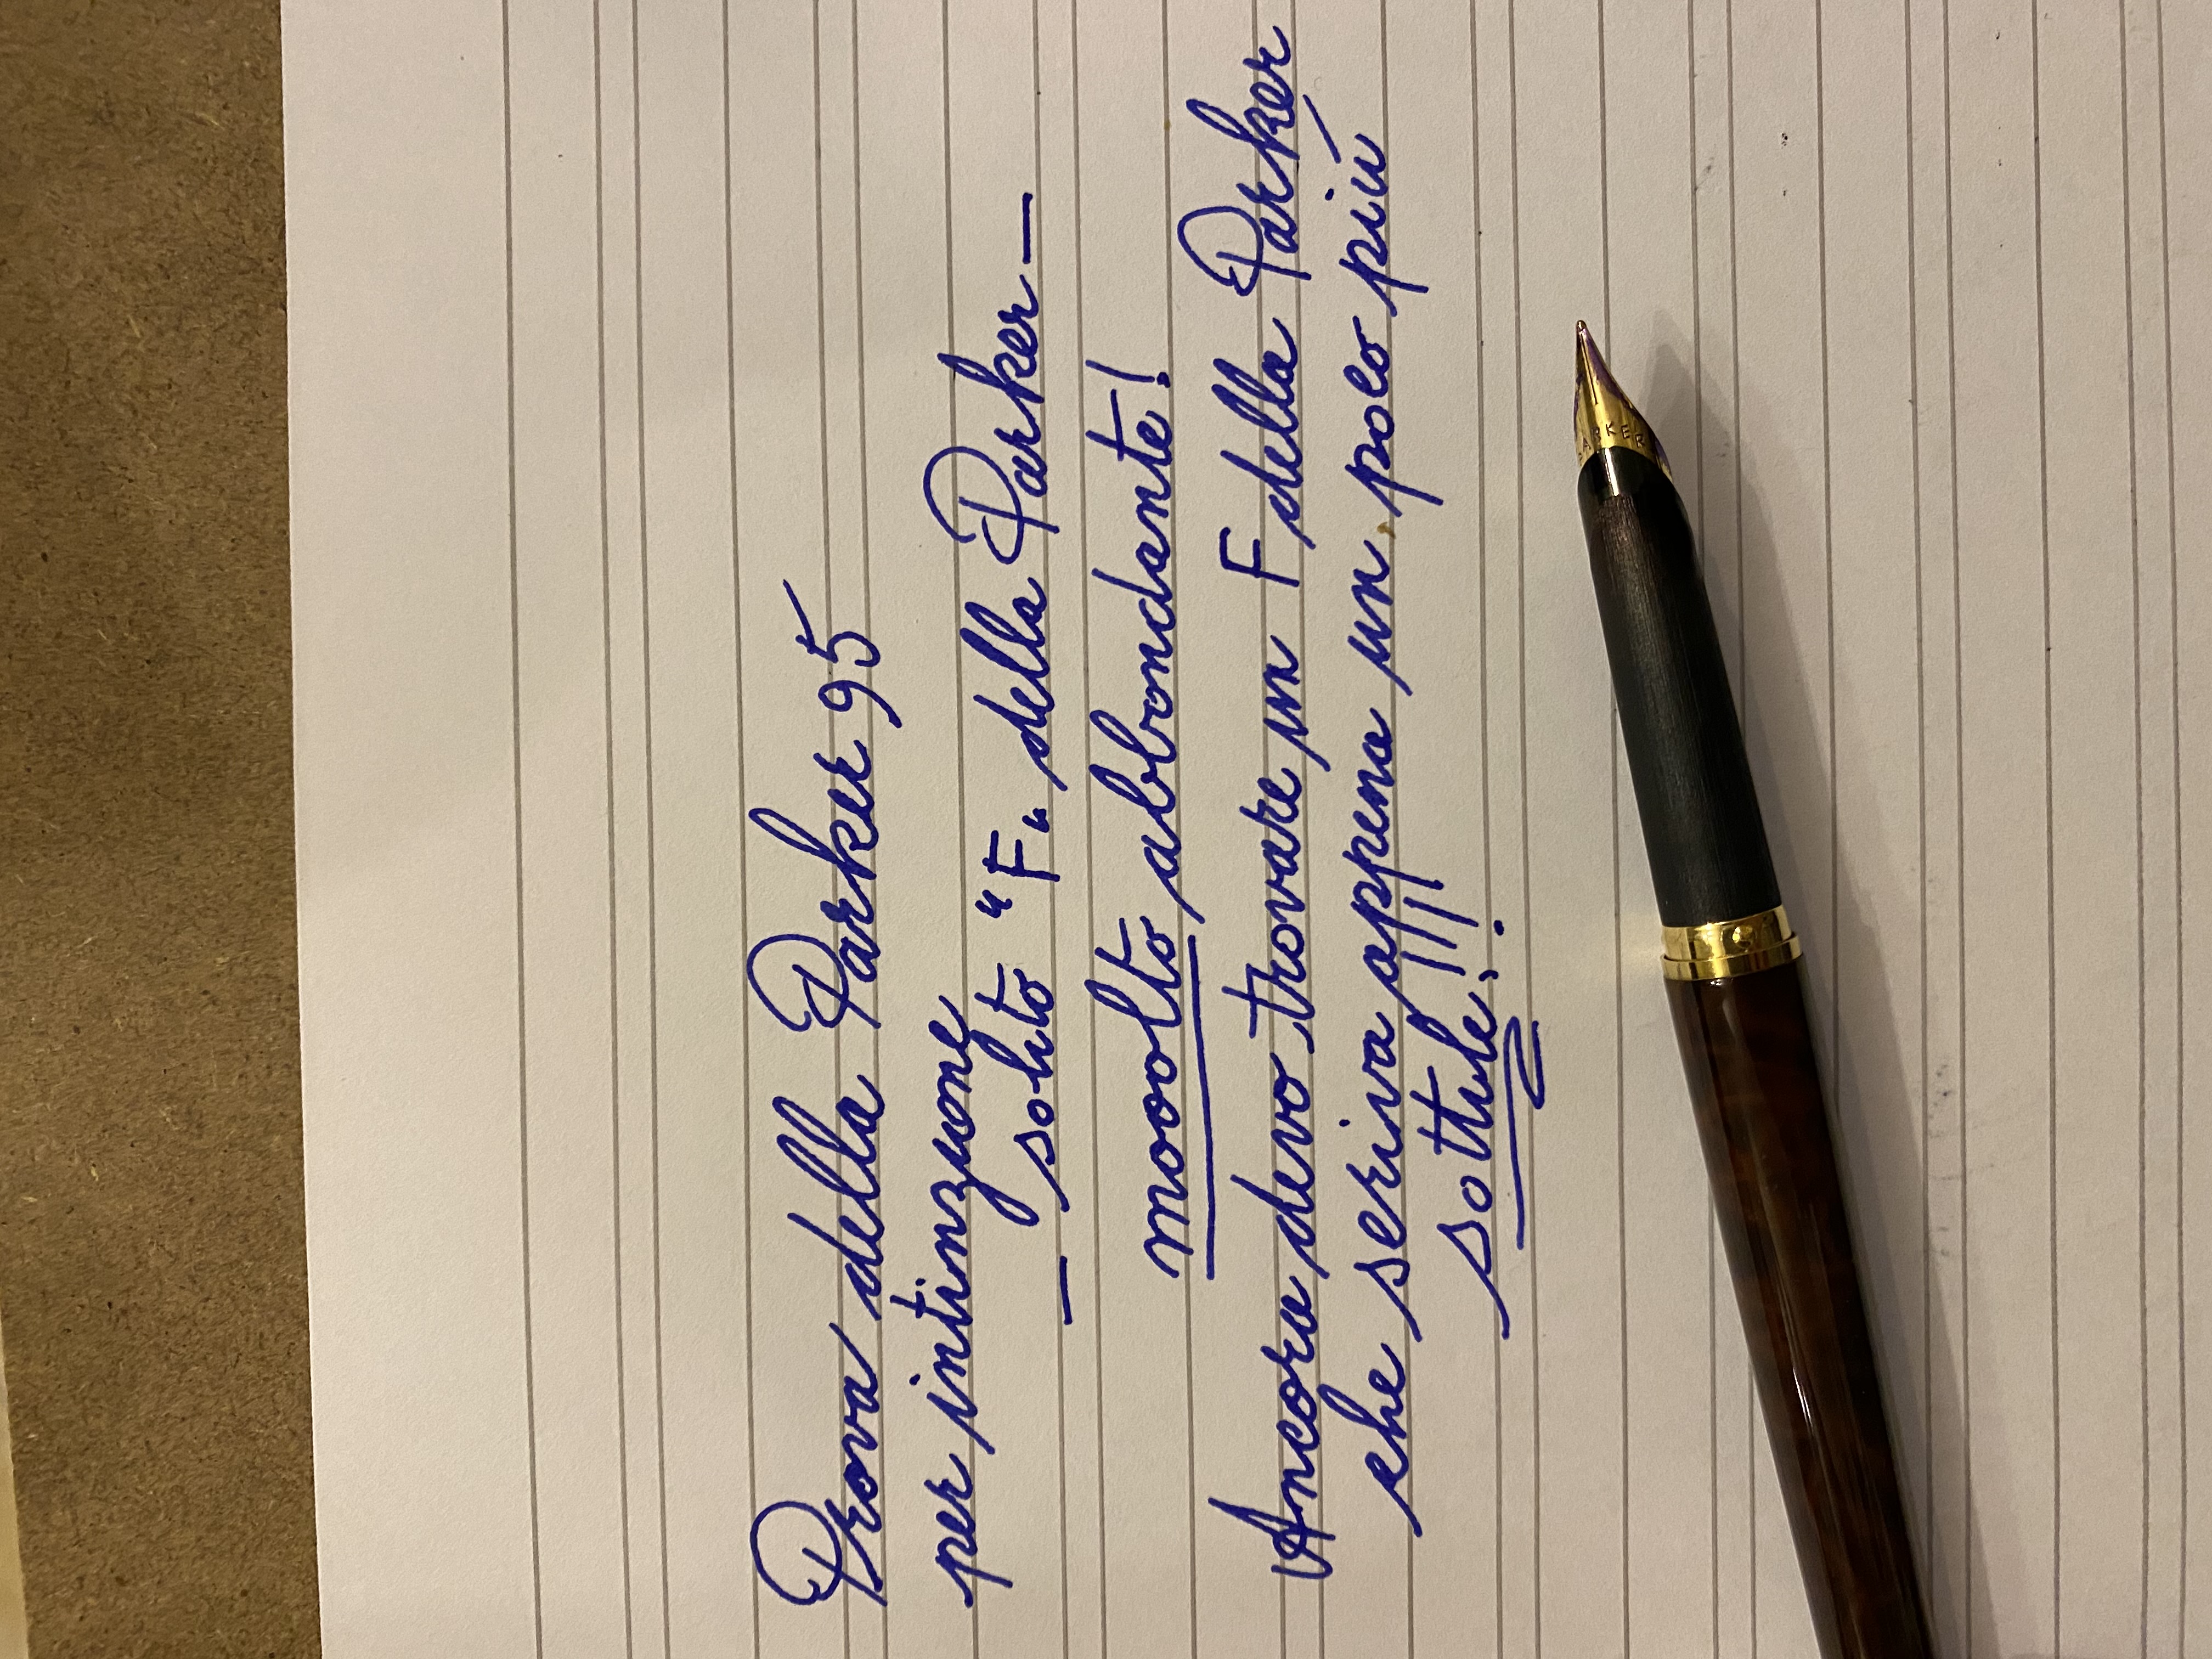 Prova della Parker 95
per intinzione
— solito "F„ della Parker —
moolto abbondante!
Ancora devo trovare un F della Parker
che scriva appena un poco più
sottile!!!
PARKER